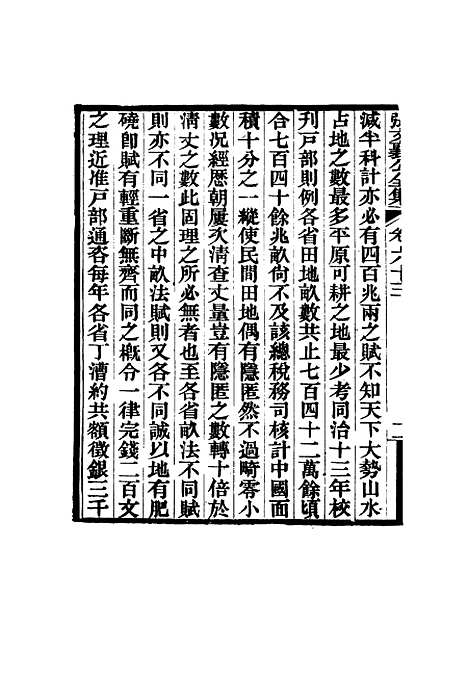 張文襄公全集 卷六十三 二
減半科計亦必有四百兆兩之賦不知天下大勢山水
占地之數最多平原可耕之地最少考同治十三年校
刊戸部則例各省田地畝數共止七百四十二萬餘頃
合七百四十餘兆畝尙不及該總稅務司核計中國面
積十分之一縱使民間田地偶有隱匿然不過畸零小
數況經歷朝屢次清查丈量豈有隱匿之數轉十倍於
清丈之數此固理之所必無者也至各省畝法不同賦
則亦不同一省之中畝法賦則又各不同誠以地有肥
磽卽賦有輕重斷無齊而同之槪令一律完錢二百文
之理近准戸部通咨每年各省丁漕約共額徵銀三千